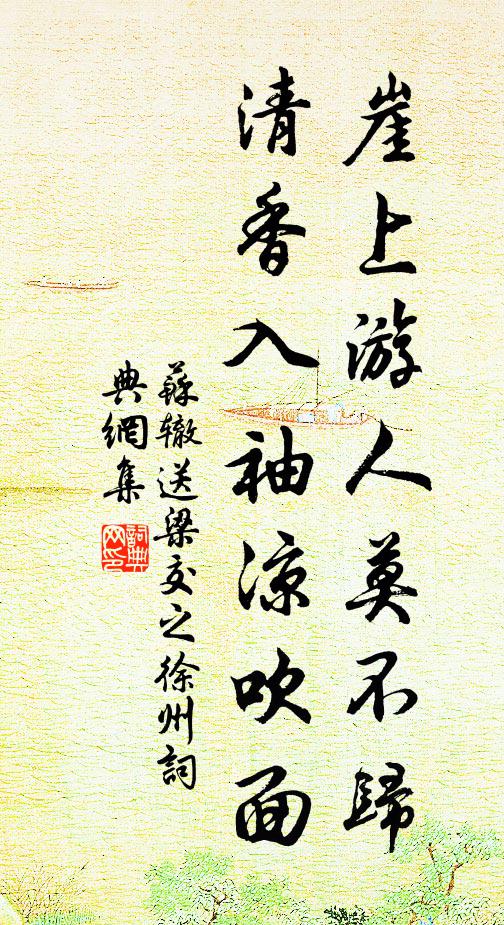 崖上游人莫不歸
清香入袖涼吹面
蘇辙送梁交之徐州詞
典網集
詞典
网印